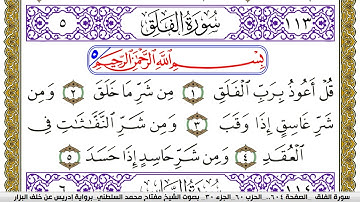 ١١٣ سُورَةُ الفَلَقِ ٥
بِسْمِ اللَّهِ الرَّحْمَٰنِ الرَّحِيمِ ٥
قُلْ أَعُوذُ بِرَبِّ الْفَلَقِ ١ مِن شَرِّ مَا خَلَقَ ٢ وَمِن
شَرِّ غَاسِقٍ إِذَا وَقَبَ ٣ وَمِن شَرِّ النَّفَّٰثَٰتِ فِى
الْعُقَدِ ٤ وَمِن شَرِّ حَاسِدٍ إِذَا حَسَدَ ٥
١١٤ سُورَةُ النَّاسِ ٦
سورة الفلق - الصفحة ٦٠٤ - الحزب ٦٠ الجزء ٣٠ - بصوت الشيخ مفتاح محمد السلطني برواية إدريس عن خلف البزار